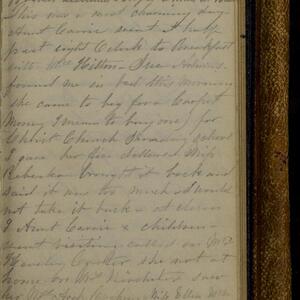 This was a most charming day
Aunt Carrie went & half
past eight Oclock to Breakfast
with Mrs Hilton - Sue
found me in bed this morning
she came to beg for a Carpet
Money (I mean to buy one) for
Christ Church Sunday school
I gave her five dollars Miss
Rebecka brought it back and
said it was too much I would
not take it back - at eleven
I Aunt Carrie & children
went visiting called on Mrs
she not at
home, on Mrs saw
her Miss Ellen